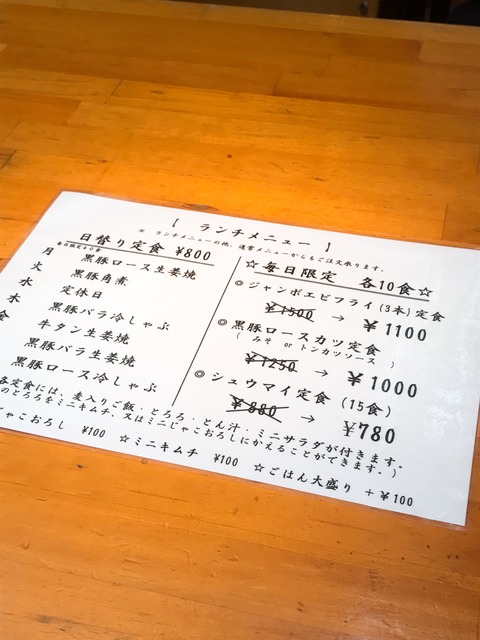 【 ランチメニュー 】
※ ランチメニューの他、通常メニューからもご注文承ります。
日替り定食 ¥800
月 黒豚ロース生姜焼
火 黒豚角煮
水 定休日
木 黒豚バラ冷しゃぶ
金 牛タン生姜焼
黒豚バラ生姜焼
黒豚ロース冷しゃぶ
☆毎日限定 各10食☆
◎ジャンボエビフライ(3本)定食
¥1500 → ¥1100
◎黒豚ロースカツ定食
( みそ or トンカツソース )
¥1250 → ¥1000
◎シュウマイ定食 (15食)
¥880 → ¥780
各定食には、麦入りご飯・とろろ・とん汁・ミニサラダが付きます。
のとろろをミニキムチ、又はミニじゃこおろしにかえることができます。)
じゃこおろし ¥100 ☆ミニキムチ ¥100 ☆ごはん大盛り +¥100